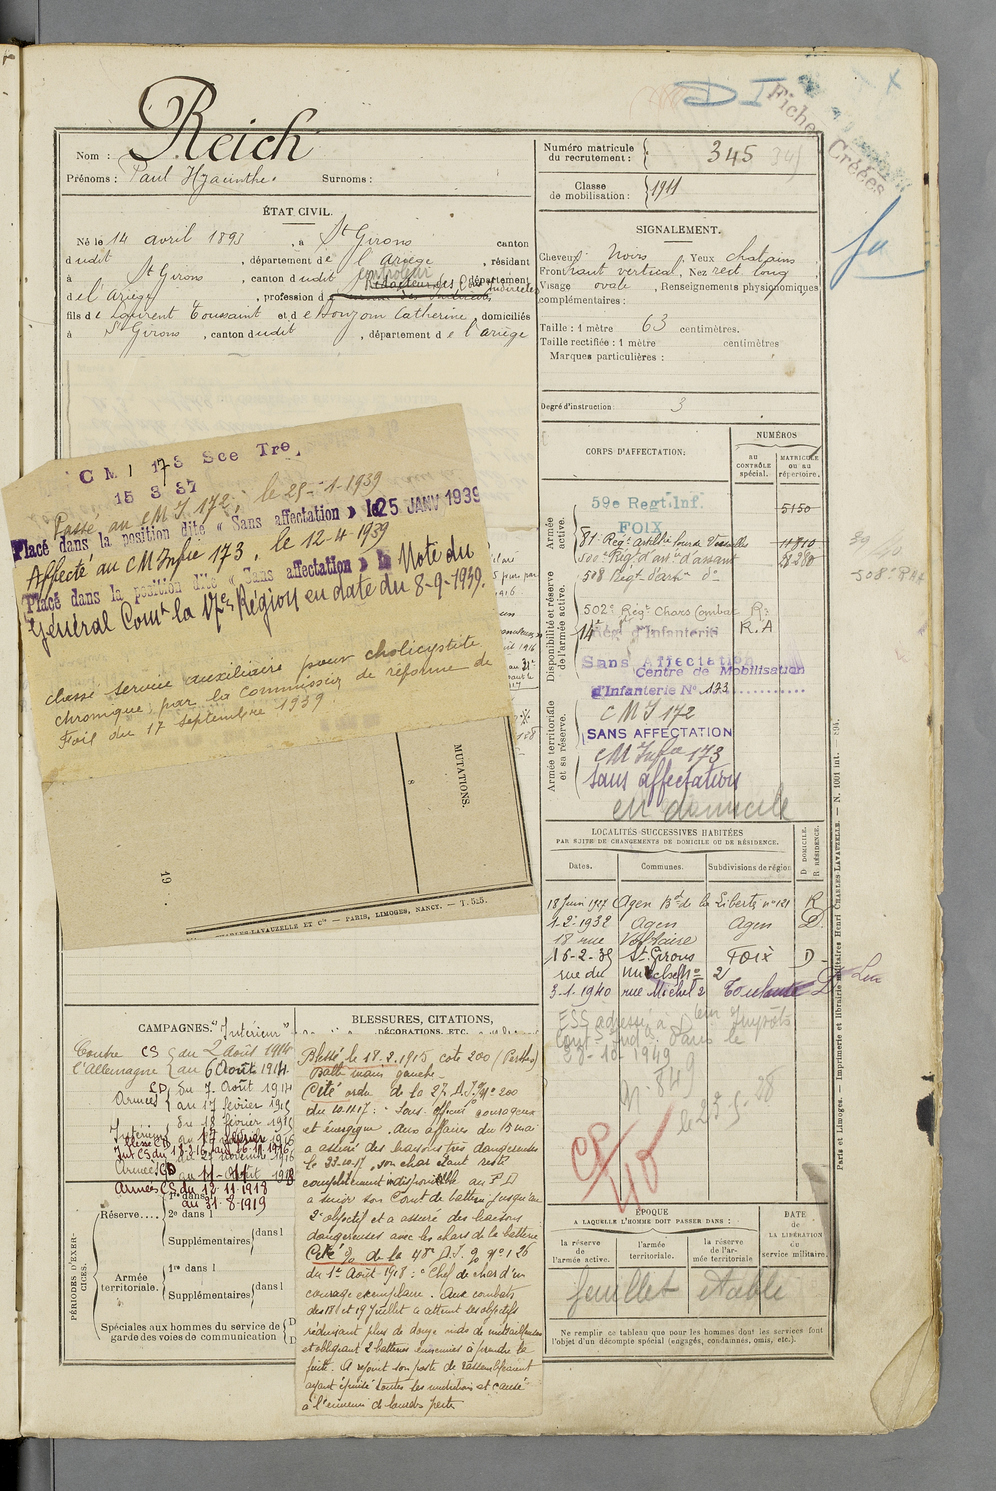 Reich
Nom :
Prénoms : Paul Hyacinthe. Surnoms :
ÉTAT CIVIL.
Né le 14 avril 1893, à St Girons canton
dudit, département de l'Ariège, résidant
à St Girons, canton dudit, département
de l'Ariège, profession de
fils de Laurent Toussaint et de Catherine, domiciliés
à St Girons, canton dudit, département de l'Ariège
Numéro matricule
du recrutement : 345
Classe
de mobilisation : 1911
Fiches Créées
SIGNALEMENT.
Cheveux Noirs Yeux chatains
Front haut vertical, Nez rect. long
Visage ovale, Renseignements physionomiques
complémentaires :
Taille : 1 mètre 63 centimètres.
Taille rectifiée : 1 mètre centimètres
Marques particulières :
Degré d'instruction : 3
CORPS D'AFFECTATION:
NUMÉROS
AU CONTRÔLE spécial.
MATRICULE ou au répertoire.
Armée active.
59e Regt. Inf. 5150
FOIX
81e Regt artillerie lourde
500e Regt d'artie d'assaut
508 Regt d'artie do
Disponibilité et réserve de l'armée active.
502e Régt Chars Combat R.
14e Rég. d'Infanterie R.A
Sans Affectation
Centre de Mobilisation
d'Infanterie No 173
Armée territoriale et sa réserve.
CMI 172
SANS AFFECTATION
CM Infie 173
Sans affectation
en domicile
CMI 173 Sce Tre
15 3 37
Passé au CMI 172, le 25-1-1939
Placé dans la position dite « Sans affectation » le 25 JANV 1939
Affecté au CM Infie 173, le 12-4 1939
Placé dans la position dite « Sans affectation » Note du
Général Comt la 17e Région en date du 8-9-1939.
classé service auxiliaire pour cholicystite
chronique par la commission de réforme de
Foix du 17 septembre 1939
MUTATIONS.
19
CHARLES-LAVAUZELLE ET Cie — PARIS, LIMOGES, NANCY. — T. 525.
LOCALITÉS SUCCESSIVES HABITÉES
PAR SUITE DE CHANGEMENTS DE DOMICILE OU DE RÉSIDENCE.
D DOMICILE. R RÉSIDENCE.
Dates. Communes. Subdivisions de région
18 Juin 1927 Agen Bd de la Liberté no 121 R
1-2-1932 Agen Agen D.
18 rue Voltaire
16-2-35 St Girons Foix D
rue du
3-1-1940 rue Michelet 2 Toulouse D
CAMPAGNES. "Intérieur"
Contre CS du 2 août 1914
l'Allemagne au 6 Août 1914
Armées CD du 7 Août 1914
au 17 février 1915
Intérieur du 18 février 1915
Armées CD au 11-1918
Armées CS du 12.11.1918
au 31.8.1919
BLESSURES, CITATIONS,
DÉCORATIONS, ETC.
Blessé le 18.2.1915 cote 200 (Perthes)
Balle main gauche.
Cité ordre de la 27 D.I. No 200
du 10.11.17 : "Sous officier courageux
et énergique. Aux affaires du 5 mai
a assuré des liaisons très dangereuses
le 23.10.17, son char étant resté
complètement indisponible au P.D
a suivi son Comt de batterie jusqu'au
2e objectif et a assuré des liaisons
dangereuses avec les chars de la batterie
du 1er Août 1918 : "Chef de char d'un
courage exemplaire. Aux combats
des 18 et 19 Juillet a atteint les objectifs
réduisant plus de douze nids de mitrailleuses
et obligeant 2 batteries ennemies à prendre la
fuite. A rejoint son poste de rassemblement
ayant épuisé toutes les munitions et causé
à l'ennemi de lourdes pertes
PÉRIODES D'EXERCICES.
Réserve.... 1re dans l
2e dans l
Supplémentaires dans l
Armée territoriale. 1re dans l
Supplémentaires dans l
Spéciales aux hommes du service de
garde des voies de communication
ÉPOQUE
A LAQUELLE L'HOMME DOIT PASSER DANS :
la réserve de l'armée active.
l'armée territoriale.
la réserve de l'armée territoriale
DATE de LA LIBÉRATION du service militaire.
feuillet établi
Ne remplir ce tableau que pour les hommes dont les services font
l'objet d'un décompte spécial (engagés, condamnés, omis, etc.).
Paris et Limoges. — Imprimerie et librairie militaires Henri CHARLES-LAVAUZELLE. — N. 1001 int. — 894.